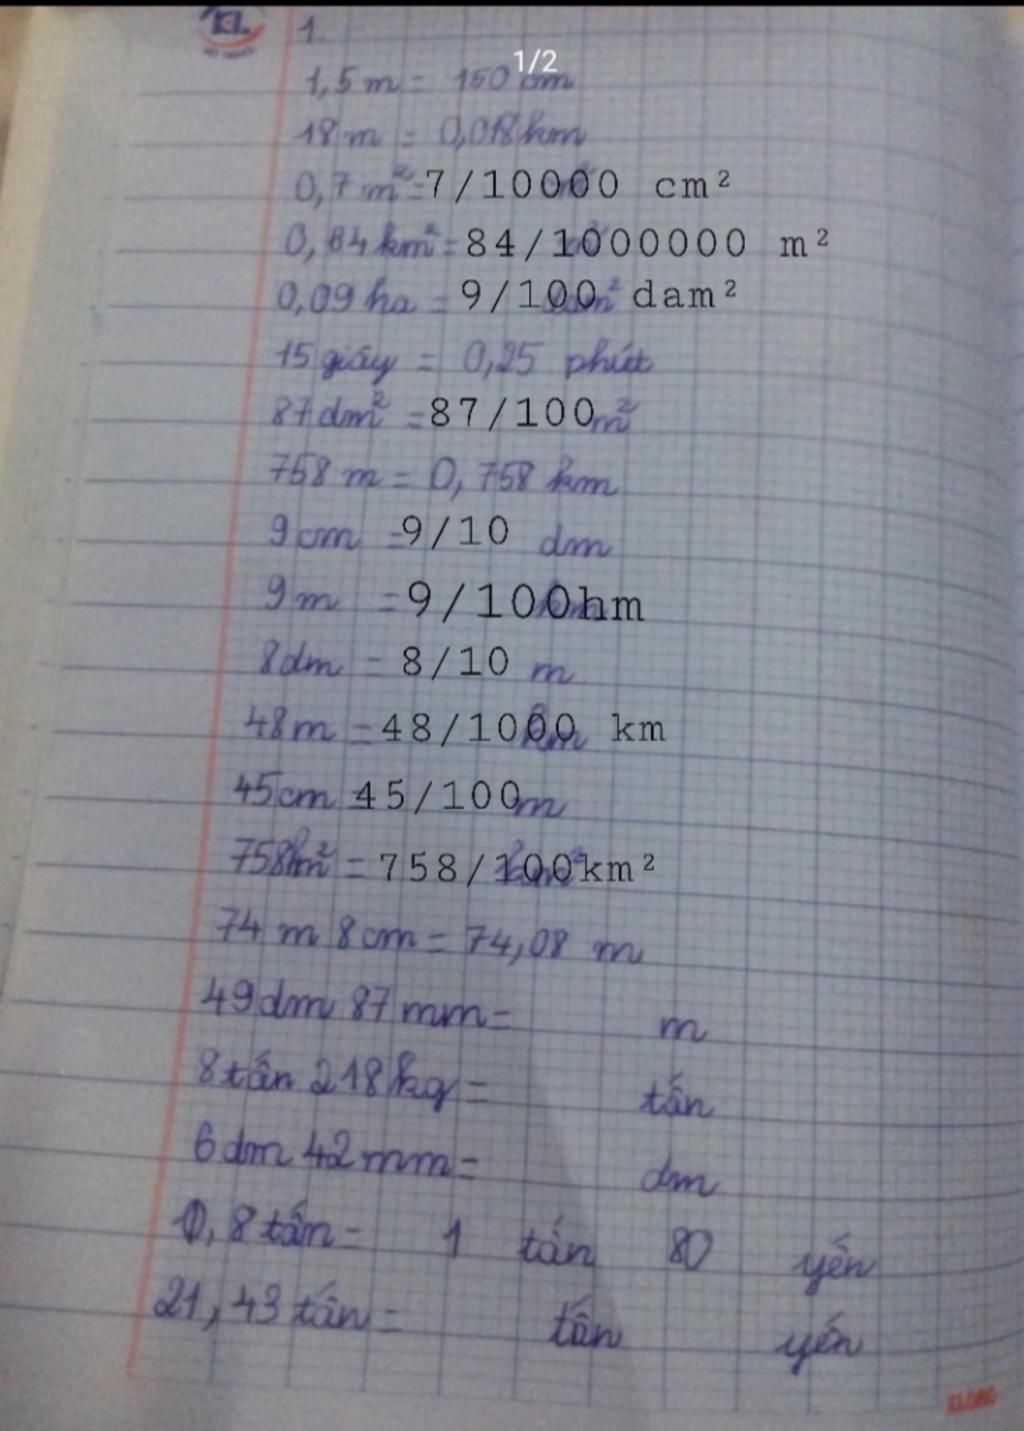 KL
1.
1/2
1,5 m = 150 cm
18 m = 0,018 km
0,7 m² = 7/10000 cm²
0,84 km² = 84/1000000 m²
0,09 ha = 9/100 dam²
15 giây = 0,25 phút
87 dm² = 87/100 m²
758 m = 0,758 km
9 cm = 9/10 dm
9 m = 9/100 hm
8 dm = 8/10 m
48 m = 48/1000 km
45 cm 45/100 m
758 hm² = 758/100 km²
74 m 8 cm = 74,08 m
49 dm 87 mm = m
8 tấn 218 kg = tấn
6 dm 42 mm = dm
0,8 tấn = 1 tấn 80 yến
21,43 tấn = tấn yến
KLONG